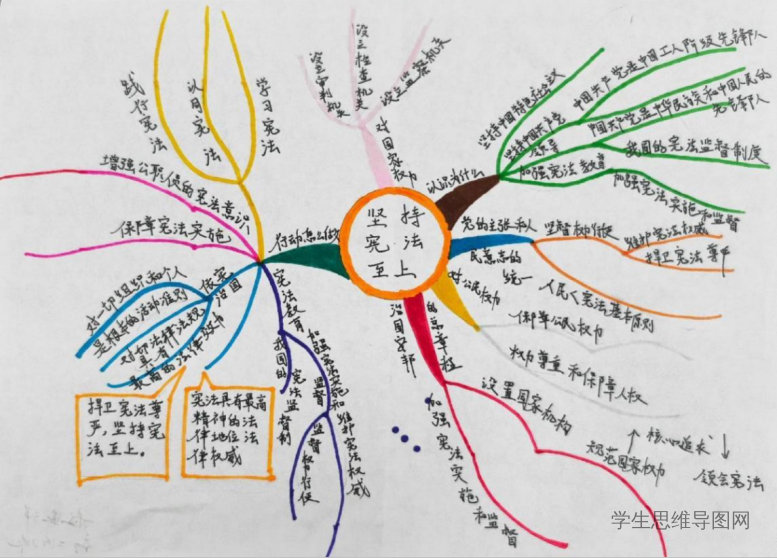 坚持
宪法
至上
认识为什么
坚持中国特色社会主义
坚持中国共产党
领导
中国共产党是中国工人阶级先锋队
中国共产党是中华民族和中国人民的
先锋队
加强宪法教育
我国的宪法监督制度
加强宪法实施和监督
党的主张和人
民意志的
统一
监督权行使
维护宪法权威
捍卫宪法尊严
人民、宪法基本原则
对公民权力
保障公民权力
权力尊重和保障人权
治国安邦
的总章程
设置国家机构
规范国家权力
加强宪法实施和监督
↑核心追求↓
领会宪法
对国家权力
设立审判
机关
设立检查
机关
设立监察机关
行动怎么做
学习宪法
认同宪法
践行宪法
增强公职人员的宪法意识
保障宪法实施
依宪
治国
对一切组织和个人
是根本的活动准则
最高的法律效力
宪法教育
我国的宪法监督制
加强宪法实施和
监督
维护宪法权威
监督权行使
捍卫宪法尊
严,坚持宪
法至上。
宪法具有最高
精神的法
律地位法
律权威
学生思维导图网